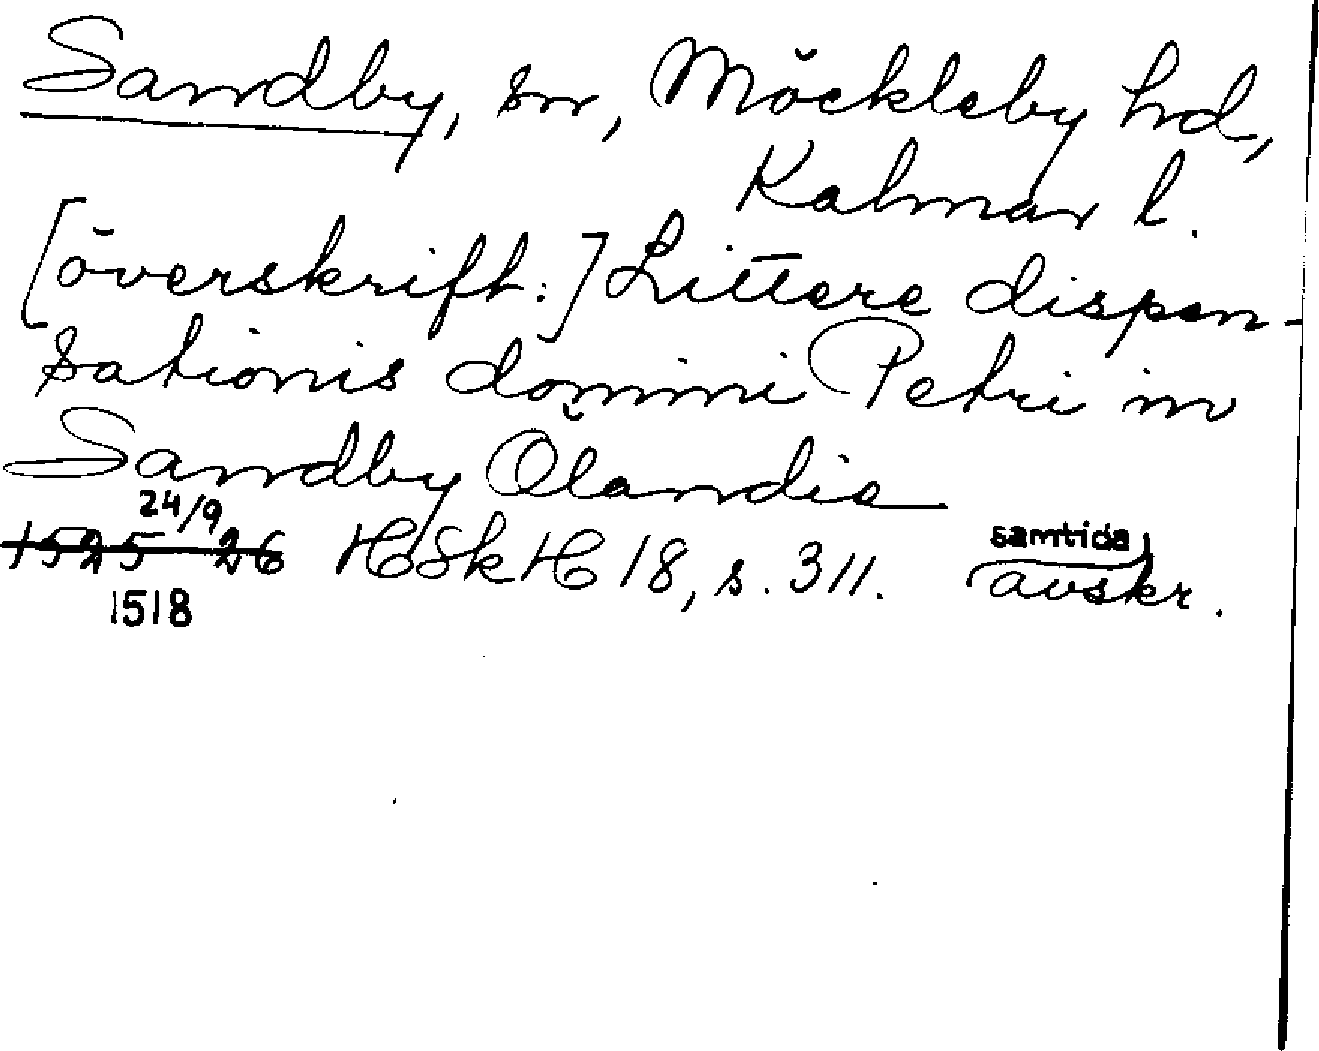 Sandby, sn, Möckleby hd,
Kalmar l.
[överskrift:] Littere dispen-
sationis domini Petri in
Sandby Ölandie
24/9
1525 26 HSkH 18, s. 311. samtida avskr.
1518